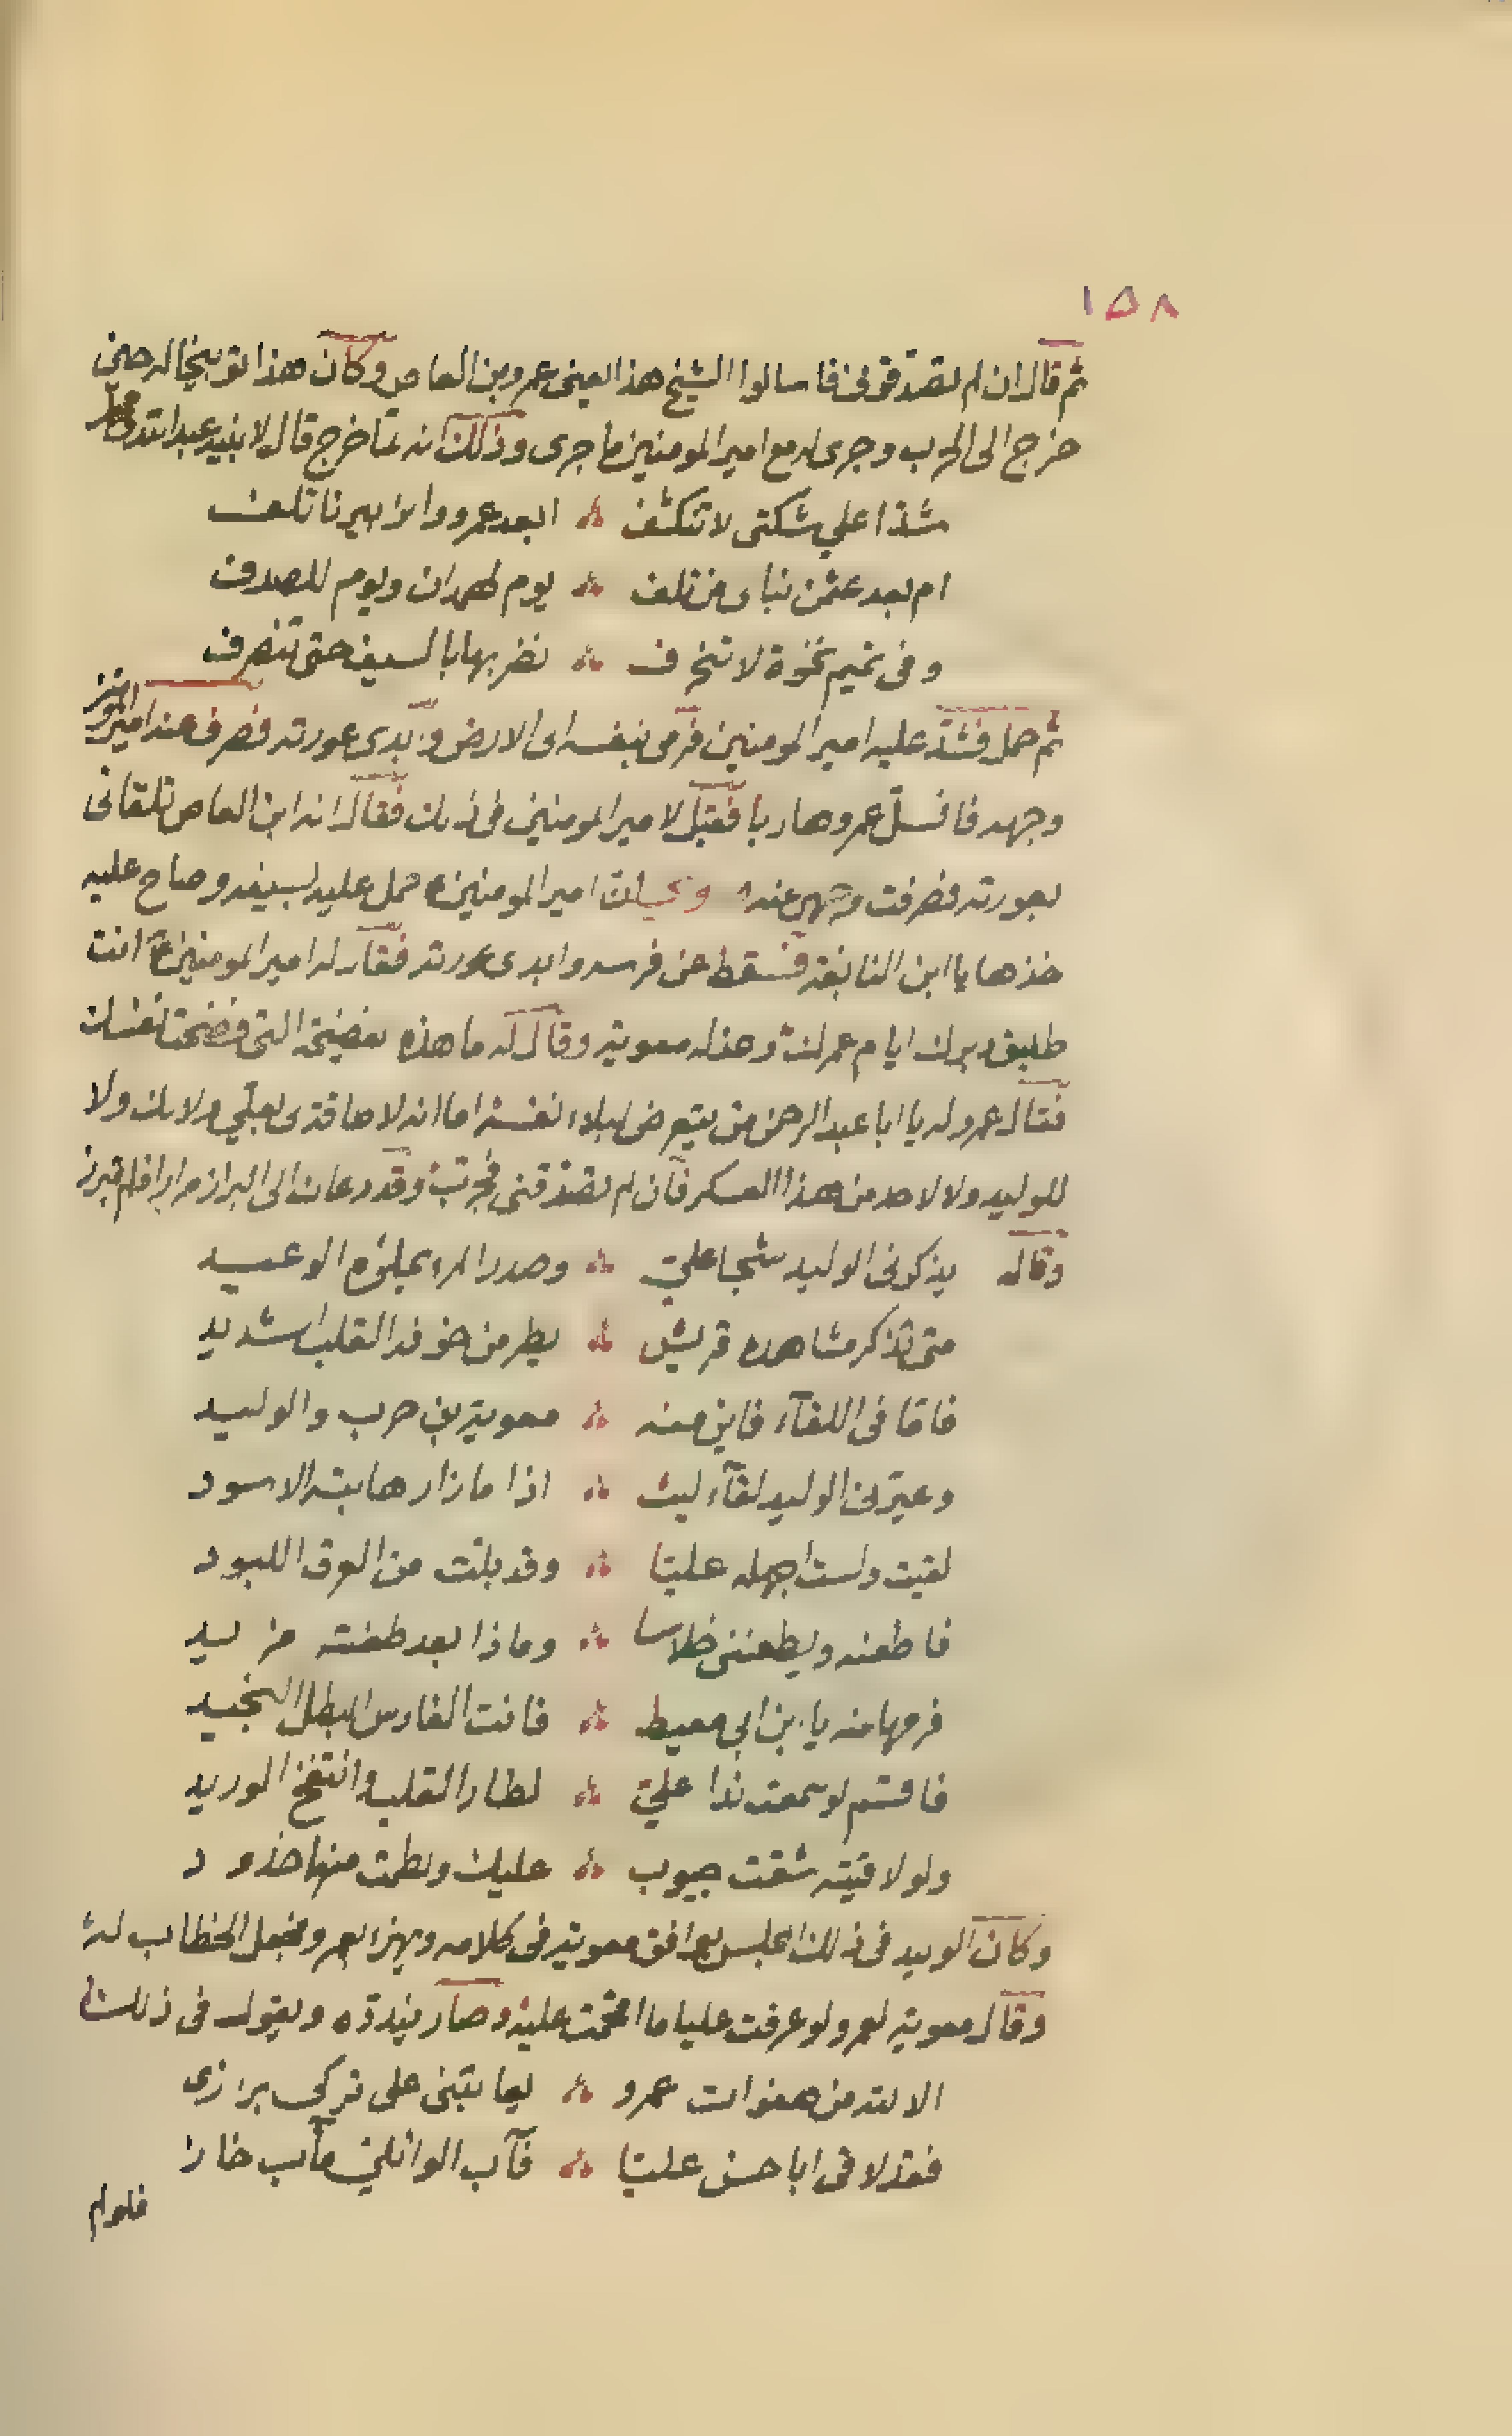 ١٥٨
ثم قال ان لم تصدقونى فاسالوا الشيخ هذا يعنى عمرو بن العاص وكان هذا توبيخا له حين
خرج الى الحرب وجرى له مع امير المومنين ما جرى وذلك انه لما خرج قال لابنيه عبد الله ومحمد
شدا علي شكتى لا تنكشف ؞ ابعد عمرو والزبير ناتلف
ام بعد عثمن نبالى من تلف ؞ يوم لهمدان ويوم للصدف
وفى تميم نخوة لا تنحرف ؞ نضربها بالسيف حتى تنصرف
ثم حمل فشد عليه امير المومنين فرمى بنفسه الى الارض وابدى عورته فصرف عنه امير المومنين
وجهه فانسل عمرو هاربا فقيل لامير المومنين فى ذلك فقال انه ابن العاص تلقانى
بعورته فصرفت وجهى عنه امير المومنين حمل عليه بسيفه وصاح عليه
خذها يا ابن النابغة فسقط عن فرسه وابدى عورته فقال له امير المومنين انت
طليق دبرك ايام عمرك معوية وقال له ما هذه الفضيحة التى فضحت نفسك
فقال عمرو له يا ابا عبد الرحمن من يتعرض لبلاء نفسه اما انه لا طاقة لى بعلي ولا لك ولا
للوليد ولا لاحد من هذا العسكر فان لم تصدقنى فجرب وقد دعاك الى البراز مرارا فلم تبرز
وقال يذكرنى الوليد شجا علي ؞ وصدر المرء يملؤه الوعيد
متى تذكر مشاهده قريش ؞ يطر من خوفه القلب الشديد
فاما فى اللقآء فاين منه ؞ معوية بن حرب والوليد
وعيرنى الوليد لقآء ليث ؞ اذا ما زار هابته الاسود
لقيت ولست اجهله عليا ؞ وقد بلت من العرق اللبود
فاطعنه ويطعننى خلاسا ؞ وماذا بعد طعنته مزيد
فرمها منه يا بن ابى معيط ؞ فانت الفارس البطل النجيد
فاقسم لو سمعت ندا علي ؞ لطار القلب وانتفخ الوريد
ولو لاقيته شقت جيوب ؞ عليك ولطمت منها خدود
وكان الوليد فى ذلك المجلس يوافق معوية فى كلامه ويهزا بعمرو فجعل الخطاب له
وقال معوية لعمرو لو عرفت عليا ما اقحمت عليه وصار يندده ويقول فى ذلك
الا لله من هفوات عمرو ؞ يعاتبنى على تركى برازى
فقد لاقى ابا حسن عليا ؞ فآب الوائلي مآب خازى
فلو لم